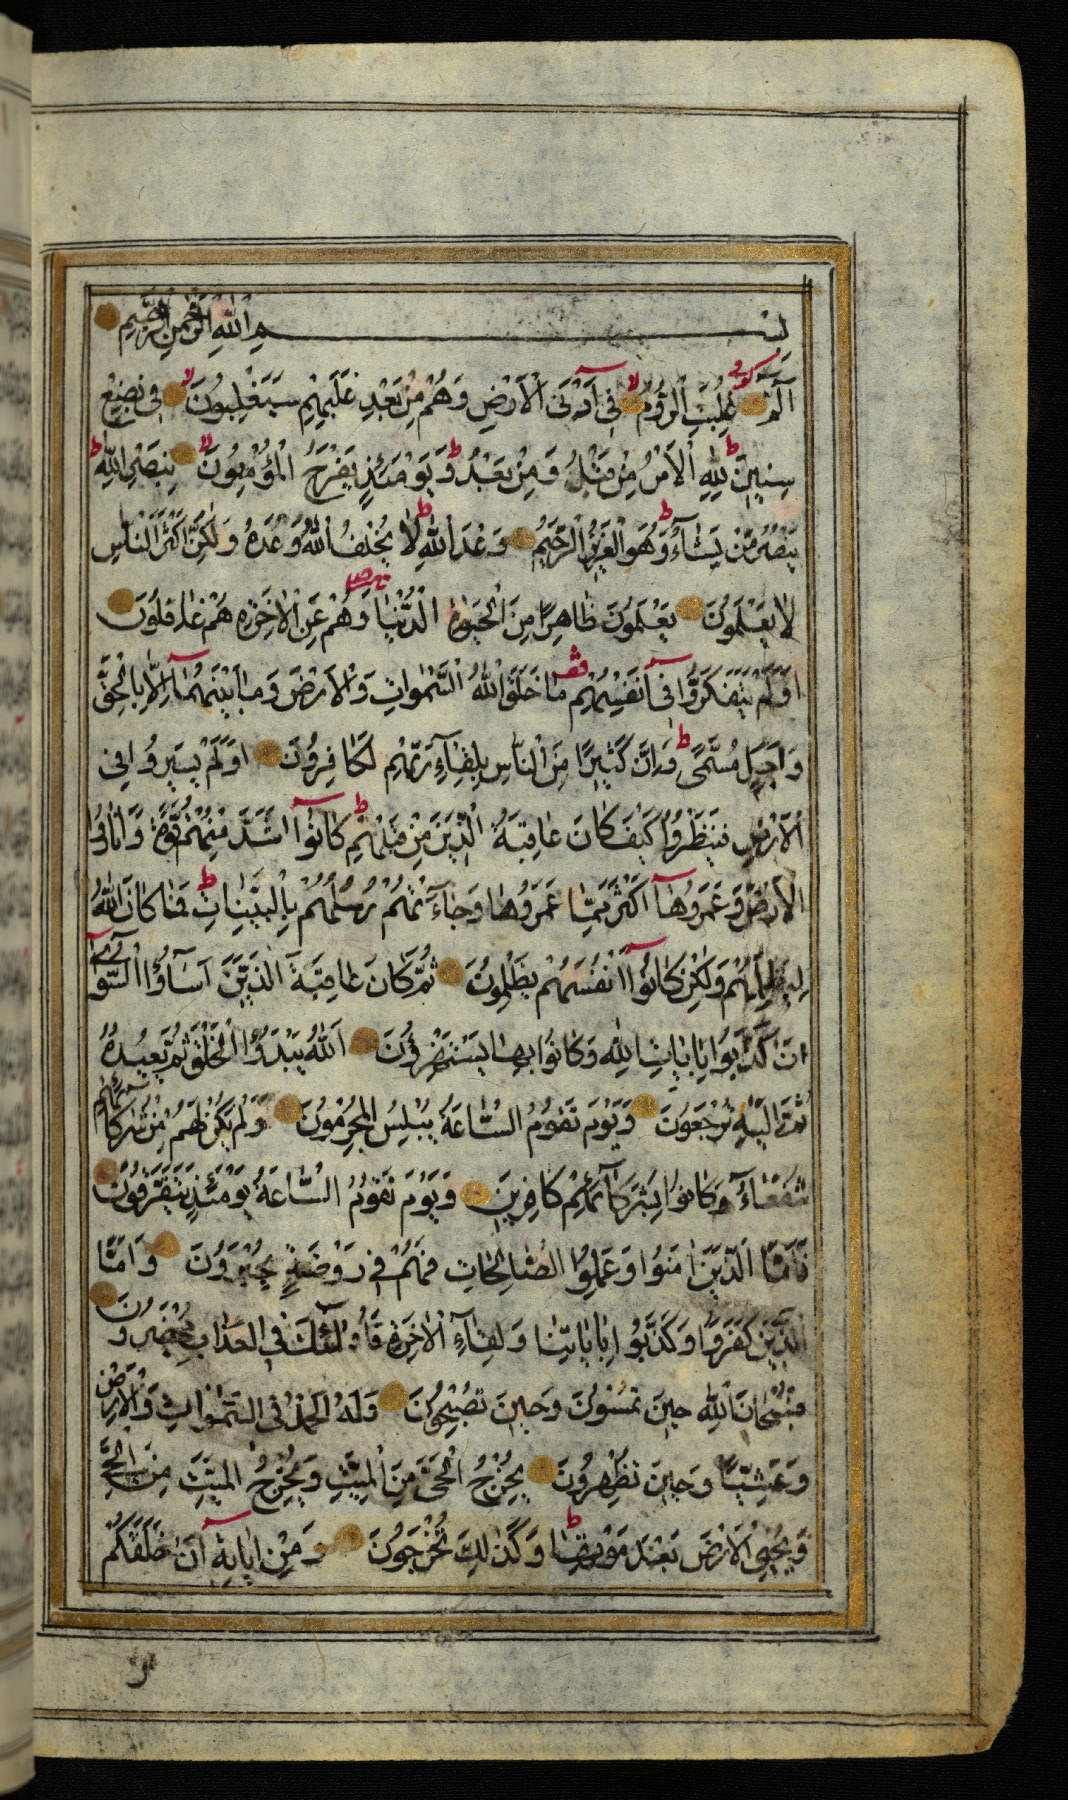 بسم الله الرحمن الرحيم
الٓمٓ غُلِبَتِ الرُّومُ فِىٓ اَدْنَى الْاَرْضِ وَهُمْ مِنْ بَعْدِ غَلَبِهِمْ سَيَغْلِبُونَ فِى بِضْعِ
سِنِينَ لِلّٰهِ الْاَمْرُ مِنْ قَبْلُ وَمِنْ بَعْدُ وَيَوْمَئِذٍ يَفْرَحُ الْمُؤْمِنُونَ بِنَصْرِ اللّٰهِ
يَنْصُرُ مَنْ يَشَآءُ وَهُوَ الْعَزِيزُ الرَّحِيمُ وَعْدَ اللّٰهِ لَا يُخْلِفُ اللّٰهُ وَعْدَهُ وَلٰكِنَّ اَكْثَرَ النَّاسِ
لَا يَعْلَمُونَ يَعْلَمُونَ ظَاهِرًا مِنَ الْحَيٰوةِ الدُّنْيَا وَهُمْ عَنِ الْاٰخِرَةِ هُمْ غَافِلُونَ
اَوَلَمْ يَتَفَكَّرُوا فِىٓ اَنْفُسِهِمْ مَا خَلَقَ اللّٰهُ السَّمٰوَاتِ وَالْاَرْضَ وَمَا بَيْنَهُمَآ اِلَّا بِالْحَقِّ
وَاَجَلٍ مُسَمًّى وَاِنَّ كَثِيرًا مِنَ النَّاسِ بِلِقَآءِ رَبِّهِمْ لَكَافِرُونَ اَوَلَمْ يَسِيرُوا فِى
الْاَرْضِ فَيَنْظُرُوا كَيْفَ كَانَ عَاقِبَةُ الَّذِينَ مِنْ قَبْلِهِمْ كَانُوٓا اَشَدَّ مِنْهُمْ قُوَّةً وَاَثَارُوا
الْاَرْضَ وَعَمَرُوهَآ اَكْثَرَ مِمَّا عَمَرُوهَا وَجَآءَتْهُمْ رُسُلُهُمْ بِالْبَيِّنَاتِ فَمَا كَانَ اللّٰهُ
لِيَظْلِمَهُمْ وَلٰكِنْ كَانُوٓا اَنْفُسَهُمْ يَظْلِمُونَ ثُمَّ كَانَ عَاقِبَةَ الَّذِينَ اَسَآؤُا السُّوٓاٰى
اَنْ كَذَّبُوا بِاٰيَاتِ اللّٰهِ وَكَانُوا بِهَا يَسْتَهْزِؤُنَ اَللّٰهُ يَبْدَؤُا الْخَلْقَ ثُمَّ يُعِيدُهُ
ثُمَّ اِلَيْهِ تُرْجَعُونَ وَيَوْمَ تَقُومُ السَّاعَةُ يُبْلِسُ الْمُجْرِمُونَ وَلَمْ يَكُنْ لَهُمْ مِنْ شُرَكَآئِهِمْ
شُفَعَآءُ وَكَانُوا بِشُرَكَآئِهِمْ كَافِرِينَ وَيَوْمَ تَقُومُ السَّاعَةُ يَوْمَئِذٍ يَتَفَرَّقُونَ
فَاَمَّا الَّذِينَ اٰمَنُوا وَعَمِلُوا الصَّالِحَاتِ فَهُمْ فِى رَوْضَةٍ يُحْبَرُونَ وَاَمَّا
الَّذِينَ كَفَرُوا وَكَذَّبُوا بِاٰيَاتِنَا وَلِقَآءِ الْاٰخِرَةِ فَاُولٰٓئِكَ فِى الْعَذَابِ مُحْضَرُونَ
فَسُبْحَانَ اللّٰهِ حِينَ تُمْسُونَ وَحِينَ تُصْبِحُونَ وَلَهُ الْحَمْدُ فِى السَّمٰوَاتِ وَالْاَرْضِ
وَعَشِيًّا وَحِينَ تُظْهِرُونَ يُخْرِجُ الْحَىَّ مِنَ الْمَيِّتِ وَيُخْرِجُ الْمَيِّتَ مِنَ الْحَىِّ
وَيُحْىِ الْاَرْضَ بَعْدَ مَوْتِهَا وَكَذٰلِكَ تُخْرَجُونَ وَمِنْ اٰيَاتِهِٓ اَنْ خَلَقَكُمْ